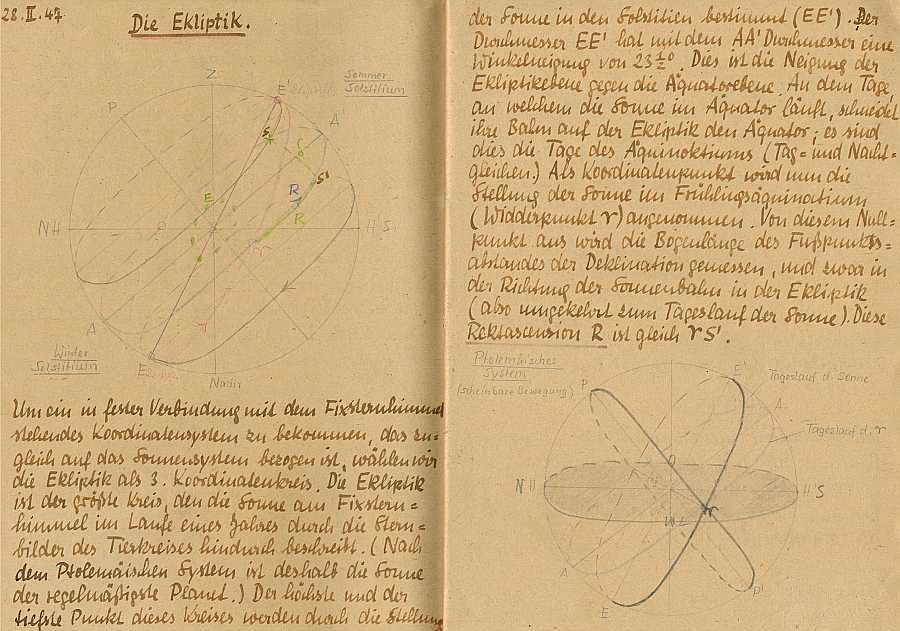 28.II.47
Die Ekliptik.
Z
P
E'
Sommer
Solstitium
A'
S
δ
S'
E
R
R
NH
HS
♈
A
Winter
Solstitium
E
Nadir
Um ein in fester Verbindung mit dem Fixsternhimmel
stehendes Koordinatensystem zu bekommen, das zu=
gleich auf das Sonnensystem bezogen ist, wählen wir
die Ekliptik als 3. Koordinatenkreis. Die Ekliptik
ist der größte Kreis, den die Sonne am Fixstern=
himmel im Laufe eines Jahres durch die Stern=
bilder des Tierkreises hindurch beschreibt. (Nach
dem Ptolemäischen System ist deshalb die Sonne
der regelmäßigste Planet.) Der höchste und der
tiefste Punkt dieses Kreises werden durch die Stellung
der Sonne in den Solstitien bestimmt (EE'). Der
Durchmesser EE' hat mit dem AA' Durchmesser eine
Winkelneigung von 23½°. Dies ist die Neigung der
Ekliptikebene gegen die Äquatorebene. An dem Tage,
an welchem die Sonne im Äquator läuft, schneidet
ihre Bahn auf der Ekliptik den Äquator; es sind
dies die Tage des Äquinoktiums (Tag= und Nacht=
gleichen.) Als Koordinatenpunkt wird nun die
Stellung der Sonne im Frühlingsäquinoctium
(Widderpunkt ♈) angenommen. Von diesem Null=
punkt aus wird die Bogenlänge des Fußpunkts=
abstandes der Deklination gemessen, und zwar in
der Richtung der Sonnenbahn in der Ekliptik
(also umgekehrt zum Tageslauf der Sonne). Diese
Rektascension R ist gleich ♈ S'.
Ptolemäisches
System
(scheinbare Bewegung)
P
E'
Tageslauf d. Sonne
A'
Tageslauf d. ♈
O
NH
HS
W
♈
A
E
P'